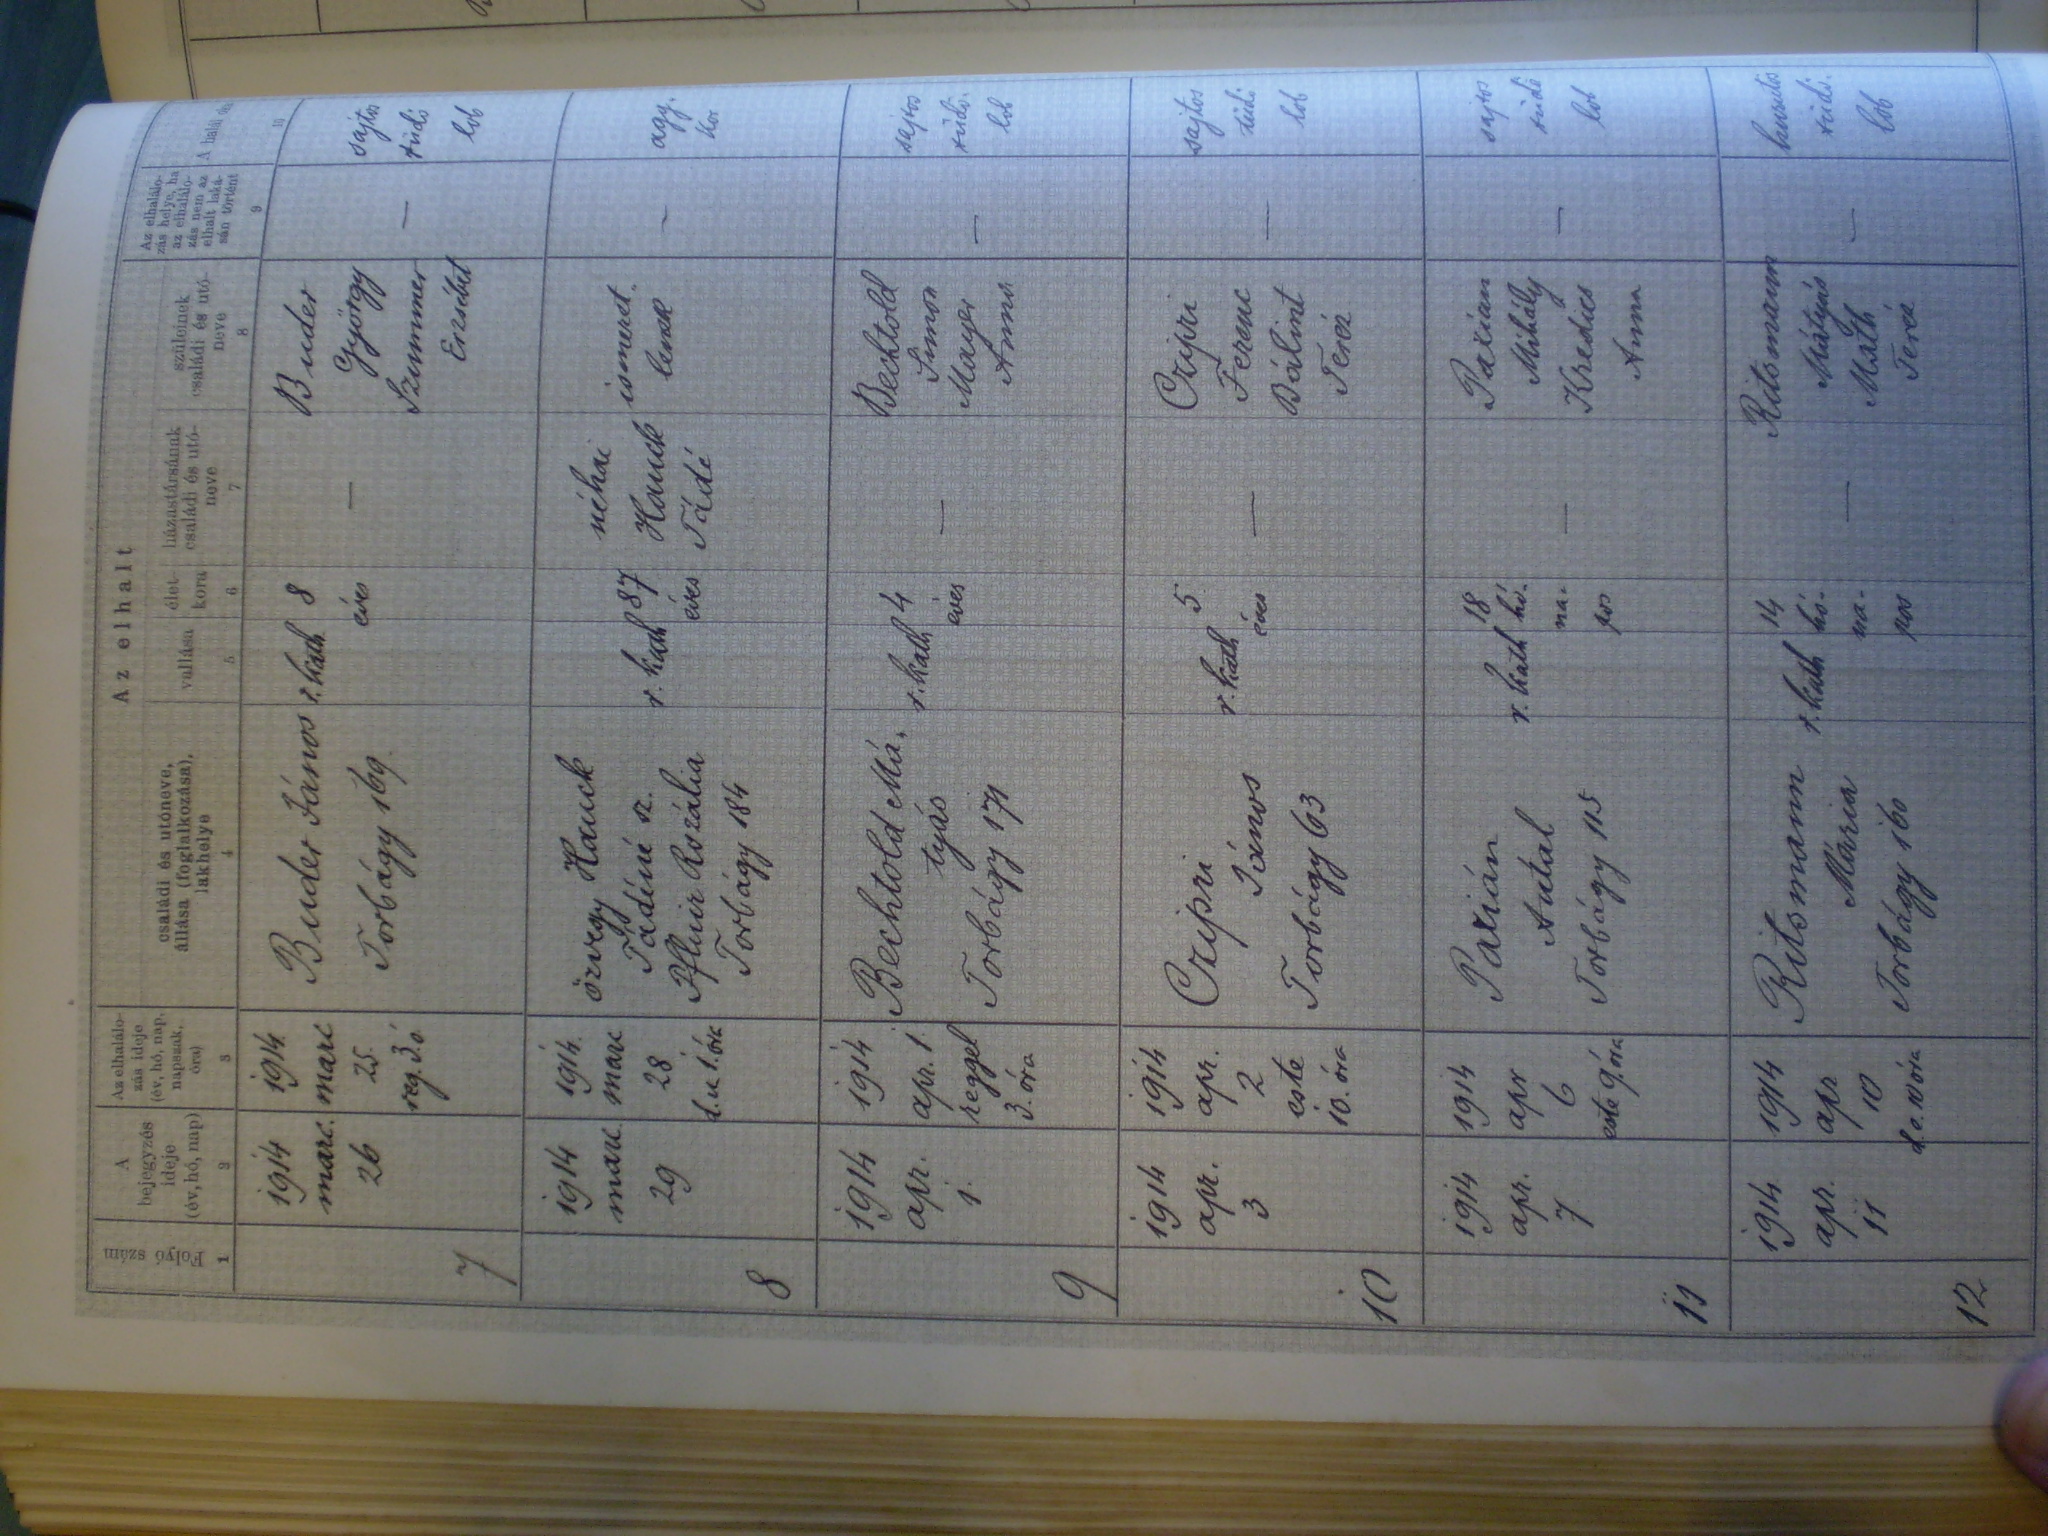 Az elhalt
Folyó szám
A
bejegyzés
ideje
(év, hó, nap)
Az elhaláло-
zás ideje
(év, hó, nap,
napszak,
óra)
családi és utóneve,
állása (foglalkozása),
lakhelye
vallása
élet-
kora
házastársának
családi és utó-
neve
szüleinek
családi és utó-
neve
Az elhalálo-
zás helye, ha
az elhalálo-
zás nem az
elhalt laká-
sán történt
A halál
1
2
3
4
5
6
7
8
9
10
7
1914
marc.
26
1914
marc
25.
reg. 3 ó
Buder János
Torbágy 169.
r. kath
8
éves
—
Buder
György
Szummer
Erzsébet
—
sajtos
tüdő
lob
8
1914
marc.
29
1914.
marc
28
d.u. 1. óra
özvegy Hauck
Tádéné sz.
Pfluir Rozália
Torbágy 184
r. kath
87
éves
néhai
Hauck
Tádé
ismeret-
lenek
—
agg.
kor
9
1914
apr.
1.
1914
apr. 1.
reggel
3. óra
Bechtold Má-
tyás
Torbágy 171
r. kath
4
éves
—
Bechtold
Simon
Mayer
Anna
—
sajtos
tüdő.
lob
10
1914
apr.
3
1914
apr.
2
este
10. óra
Czipri
János
Torbágy 63
r. kath
5
éves
—
Czipri
Ferenc
Bálint
Teréz
—
sajtos
tüdő
lob
11
1914
apr.
7
1914
apr
6
este 9 óra
Paxián
Antal
Torbágy 115
r. kath
18
hó-
na-
pos
—
Paxian
Mihály
Kredics
Anna
—
sajtos
tüdő
lob
12
1914
apr.
11
1914
apr
10
d.e. 10 óra
Ritsmann
Mária
Torbágy 160
r. kath
14
hó-
na-
pos
—
Ritsmann
Mátyás
Máth
Teréz
—
tüdő.
lob